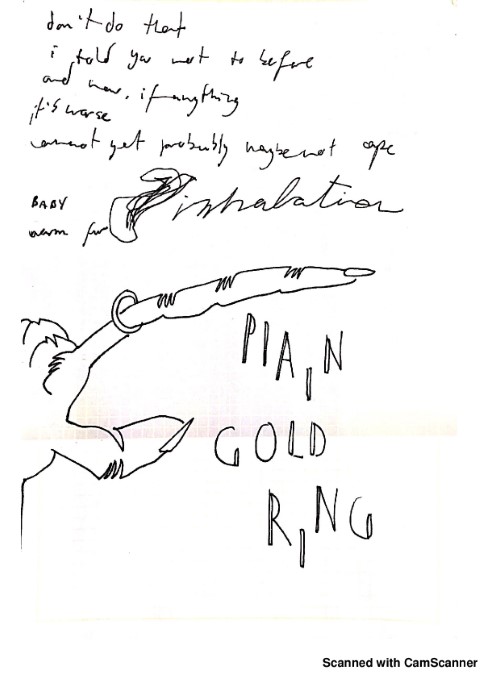 don't do that
i told you not to before
and now, if anything
it's worse
cannot get probably maybe not cope
BABY
inhalation
warm for
PLAIN
GOLD
RING
Scanned with CamScanner